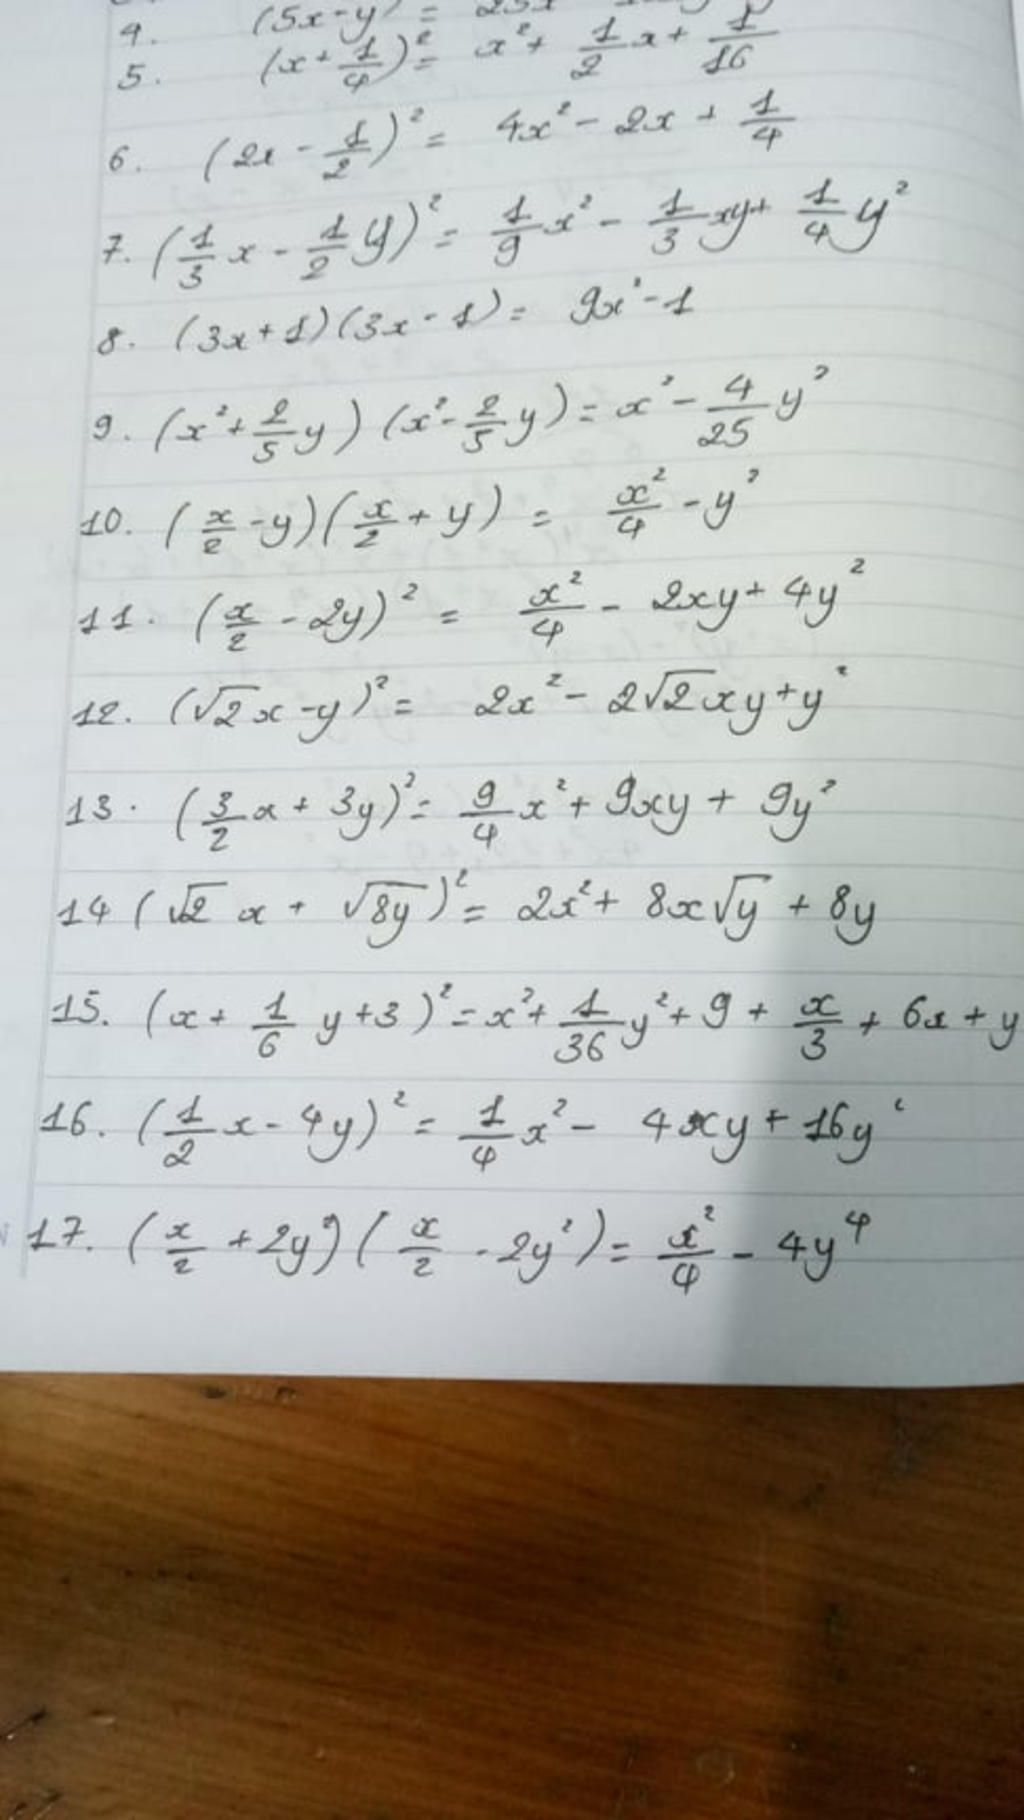 4. (5x-y)² =
5. (x+1/4)² = x²+ 1/2 x+ 1/16
6. (2x - 1/2)² = 4x² - 2x + 1/4
7. (1/3 x - 1/2 y)² = 1/9 x² - 1/3 xy+ 1/4 y²
8. (3x+1)(3x-1) = 9x²-1
9. (x²+ 2/5 y) (x²- 2/5 y) = x² - 4/25 y²
10. (x/2 -y)(x/2 + y) = x²/4 - y²
11. (x/2 - 2y)² = x²/4 - 2xy+ 4y²
12. (√2x -y)² = 2x² - 2√2xy+y²
13. (3/2 x + 3y)² = 9/4 x²+ 9xy + 9y²
14 (√2 x + √8y)² = 2x²+ 8x√y + 8y
15. (x+ 1/6 y+3)² = x²+ 1/36 y²+ 9 + x/3 + 6x + y
16. (1/2 x - 4y)² = 1/4 x² - 4xy + 16y²
17. (x/2 +2y²)(x/2 - 2y²) = x²/4 - 4y⁴